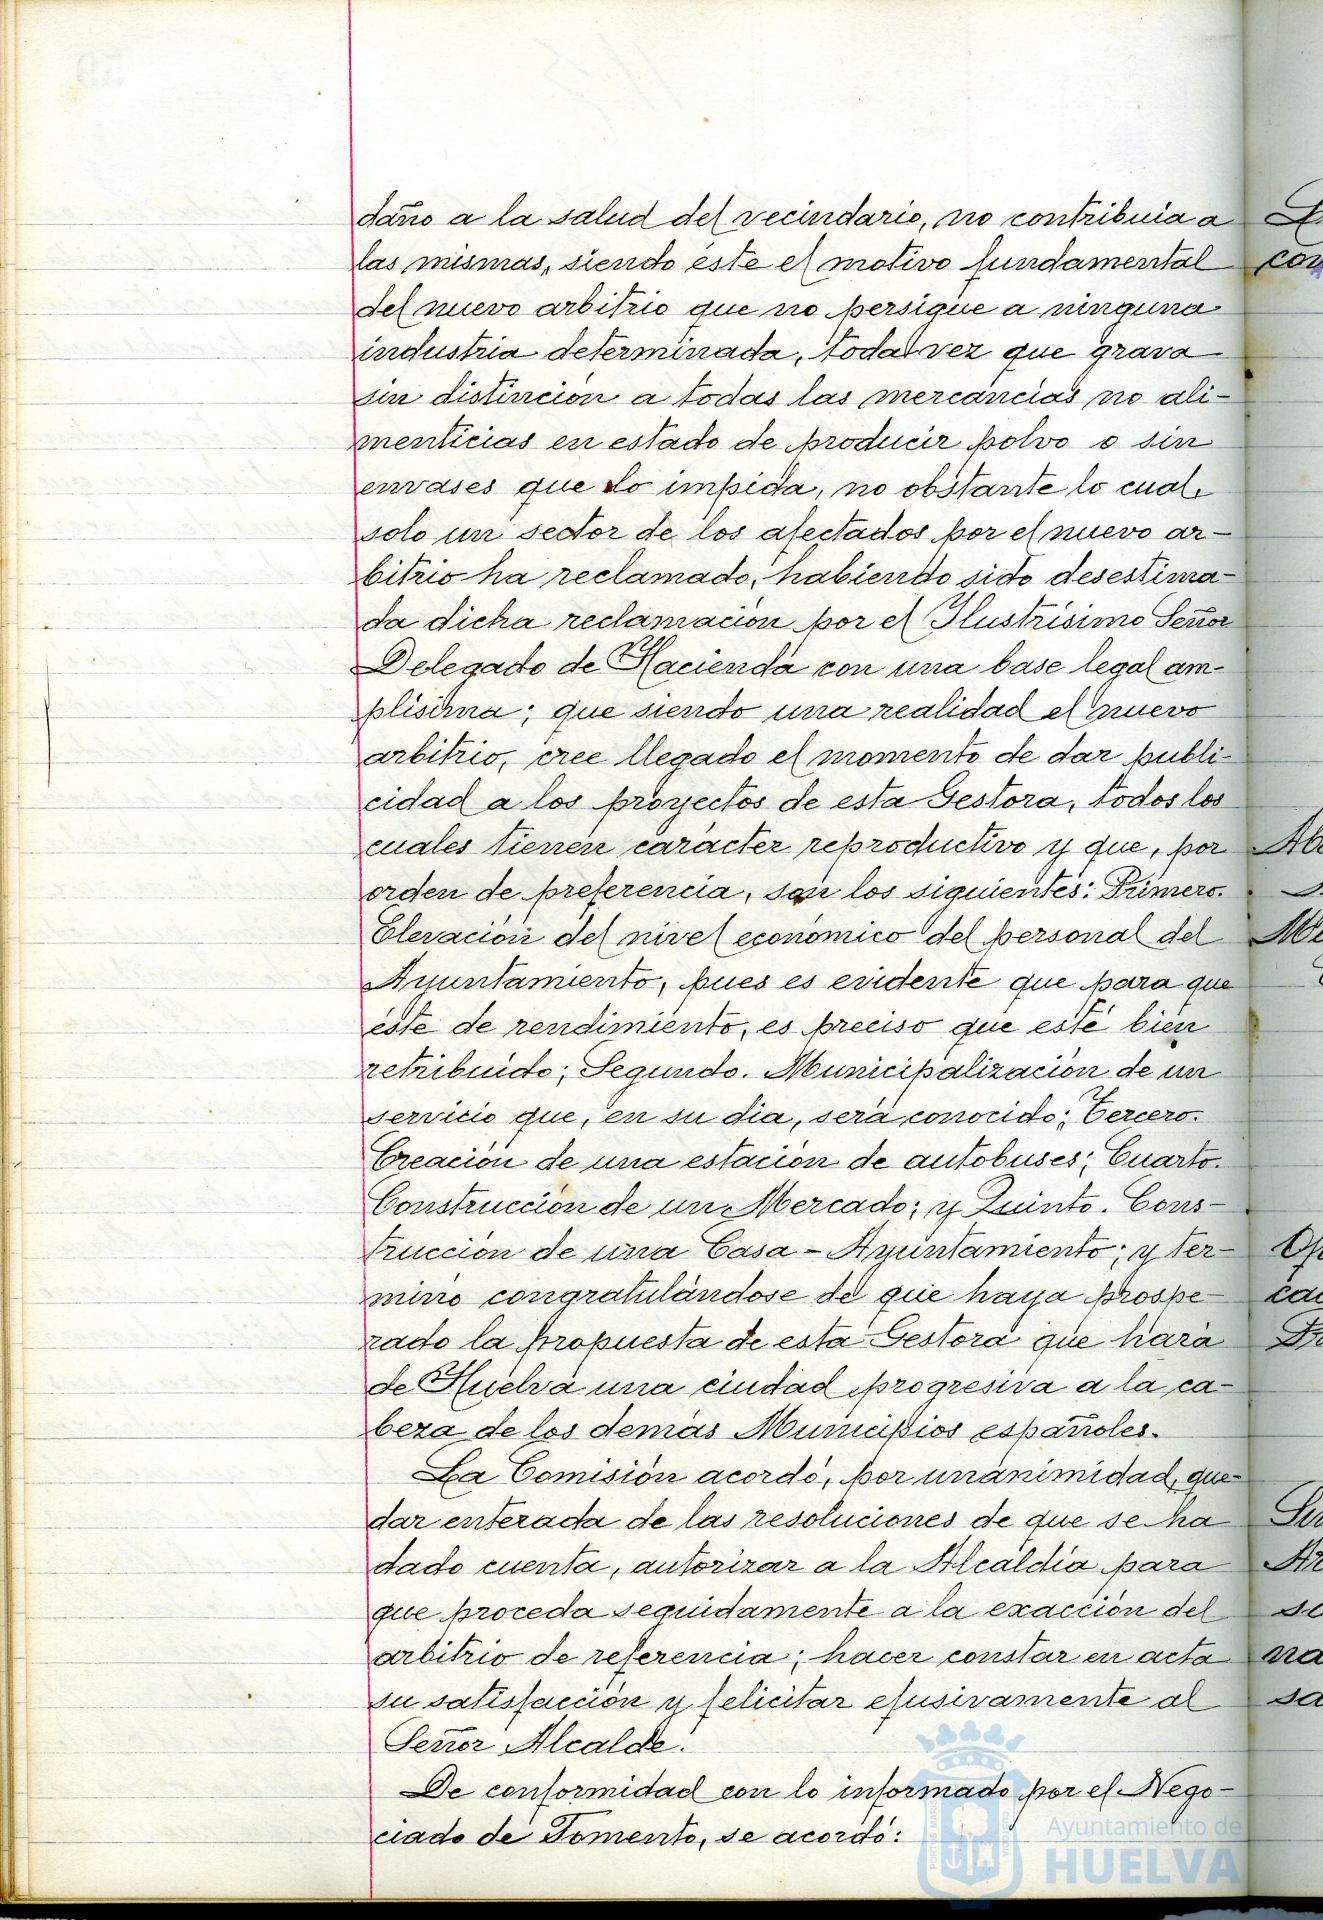 daño a la salud del vecindario, no contribuia a
las mismas, siendo éste el motivo fundamental
del nuevo arbitrio que no persigue a ninguna
industria determinada, toda vez que grava
sin distinción a todas las mercancías no ali-
menticias en estado de producir polvo o sin
envases que lo impida, no obstante lo cual,
solo un sector de los afectados por el nuevo ar-
bitrio ha reclamado, habiendo sido desestima-
da dicha reclamación por el Ilustrísimo Señor
Delegado de Hacienda con una base legal am-
plísima; que siendo una realidad el nuevo
arbitrio, cree llegado el momento de dar publi-
cidad a los proyectos de esta Gestora, todos los
cuales tienen carácter reproductivo y que, por
orden de preferencia, son los siguientes: Primero.
Elevación del nivel económico del personal del
Ayuntamiento, pues es evidente que para que
éste de rendimiento, es preciso que esté bien
retribuido; Segundo. Municipalización de un
servicio que, en su dia, será conocido; Tercero.
Creación de una estación de autobuses; Cuarto.
Construcción de un Mercado; y Quinto. Cons-
trucción de una Casa-Ayuntamiento; y ter-
minó congratulándose de que haya prospe-
rado la propuesta de esta Gestora que hará
de Huelva una ciudad progresiva a la ca-
beza de los demás Municipios españoles.
La Comisión acordó, por unanimidad, que-
dar enterada de las resoluciones de que se ha
dado cuenta, autorizar a la Alcaldía para
que proceda seguidamente a la exacción del
arbitrio de referencia; hacer constar en acta
su satisfacción y felicitar efusivamente al
Señor Alcalde.
De conformidad con lo informado por el Nego-
ciado de Fomento, se acordó:
Ayuntamiento de
HUELVA